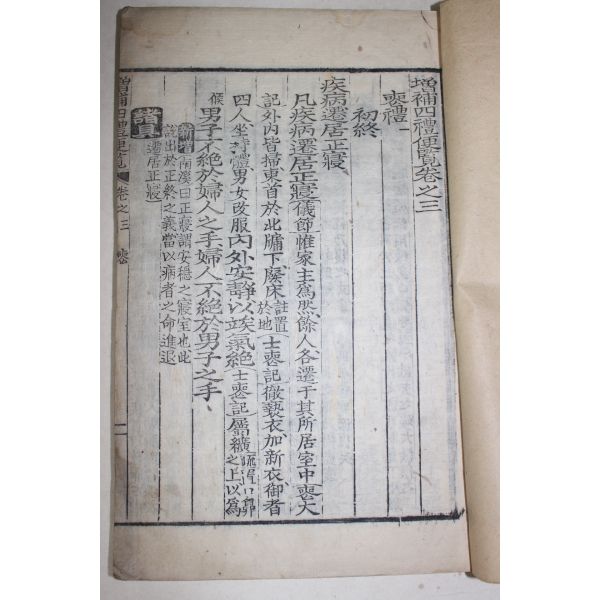 增補四禮便覽卷之三
喪禮一
初終
疾病遷居正寢
凡疾病遷居正寢儀節惟家主爲然餘人各遷于其所居室中喪大
記外內皆掃東首於北牖下廢床註置於地士喪記徹褻衣加新衣御者
四人坐持體男女改服內外安靜以竢氣絶士喪記屬纊置口鼻之上以爲
候男子不絶於婦人之手婦人不絶於男子之手
諸具
遷居正寢
新增南溪曰正寢謂安穩之寢室也此
說出於正終之義當以病者之命進退
增補四禮便覽 卷之三 喪 一